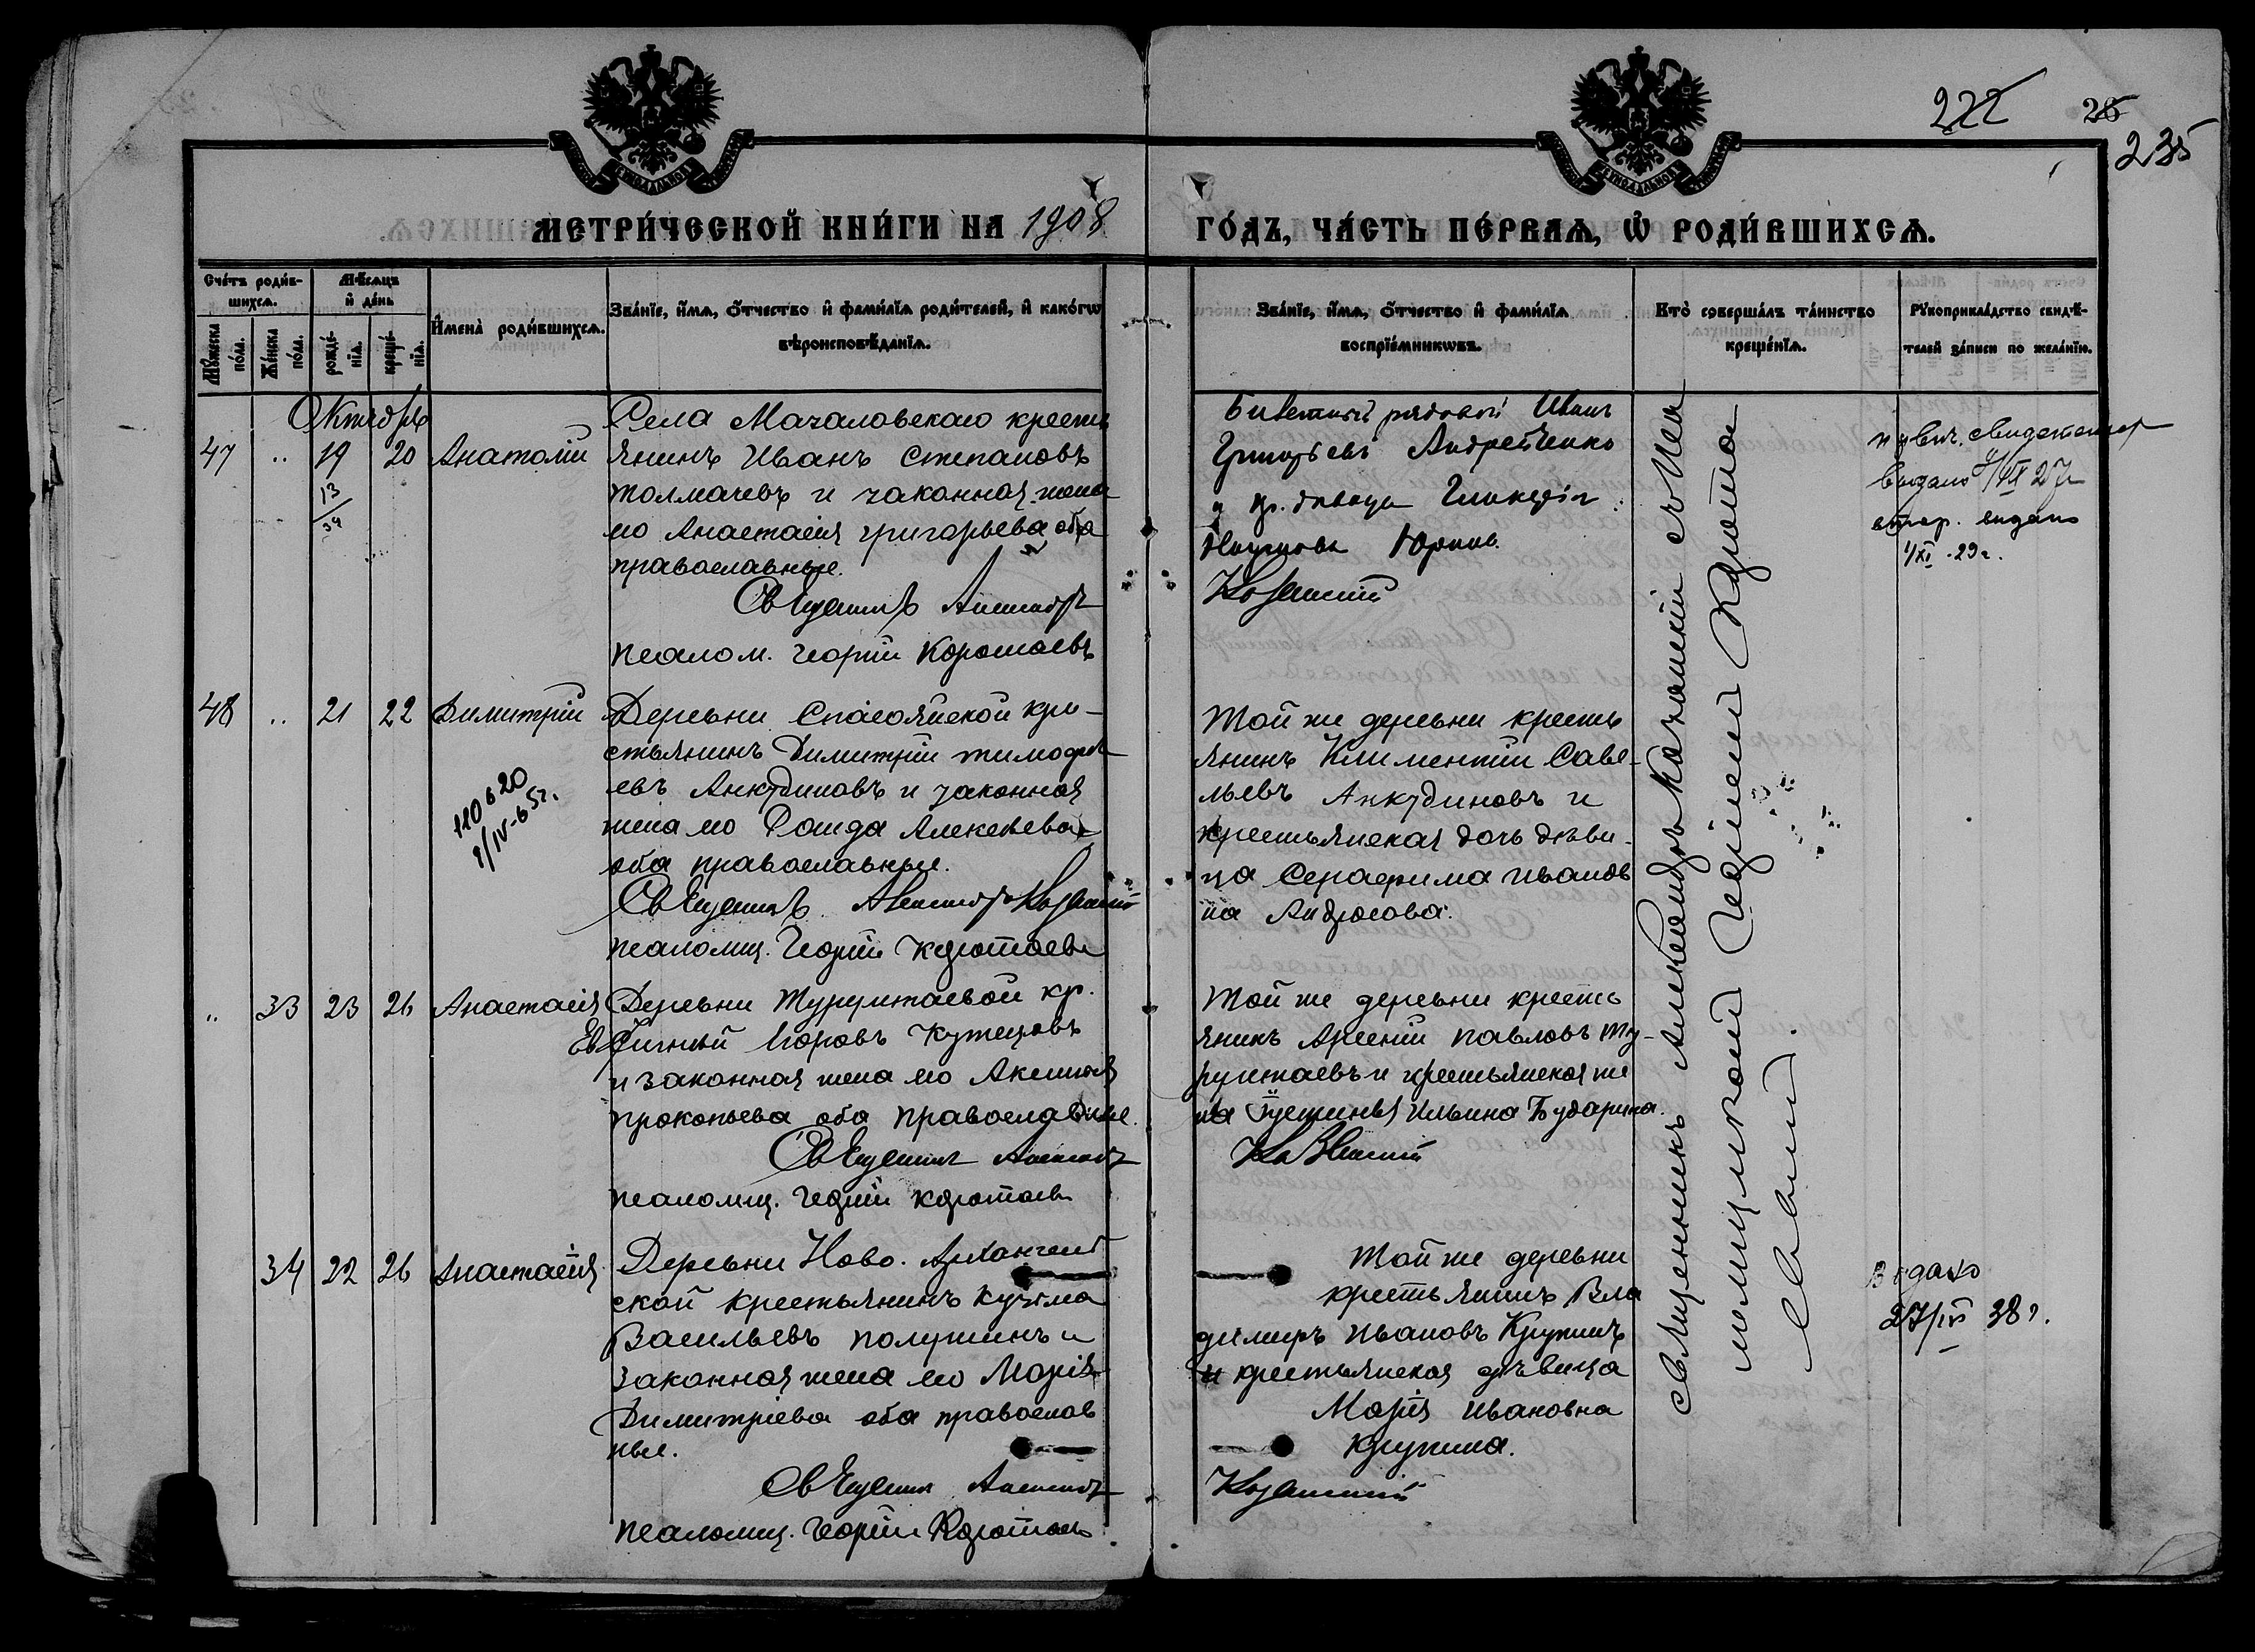 222 26
235
МЕТРИ́ЧЕСКОЙ КНИ́ГИ НА 1908
ГО́ДЪ, ЧА́СТЬ ПЕ́РВАѦ, Ѽ РОДИ́ВШИХСѦ.
Сче́тъ роди́в-
шихсѧ.
Мꙋ́жеска
по́ла.
Же́нска
по́ла.
Мѣ́сѧцъ
и҆ де́нь
рожде́-
нїѧ.
креще́-
нїѧ.
И҆мена̀ роди́вшихсѧ.
Зва́нїе, и҆́мѧ, ѻ҆́тчество и҆ фами́лїѧ роди́телей, и҆ како́гѡ
вѣроисповѣ́данїѧ.
Зва́нїе, и҆́мѧ, ѻ҆́тчество и҆ фами́лїѧ
воспрїе́мникѡвъ.
Кто̀ соверша́лъ та́инство
креще́нїѧ.
Рꙋкоприкла́дство свидѣ́-
телей за́писи по жела́нїю.
Октябрь
47 .. 19 20 Анатолій
13/34
Села Мачаловскаго кресть
янинъ Иванъ Степановъ
Толмачевъ и законная жена
его Анастасія Григорьева оба
православные.
Священникъ Александръ
Псалом. Георгій Коротаевъ
рядовой Иванъ
Григорьевъ Андрейченко
и кр. девица Гликерія
Казанскій
выдано
втор. выдано
1/XI .29г.
48 .. 21 22 Димитрій
110620
9/IV-65г.
Деревни Спасояйской кре-
стьянинъ Димитрій Тимофе
евъ Анкудиновъ и законная
жена его Алексеева
оба православные.
Священникъ Александръ Казанскій
Псаломщ. Георгій Коротаевъ
Той же деревни кресть
янинъ Климентій Саве-
льевъ Анкудиновъ и
крестьянская дочь дѣви-
ца Серафима Иванов
на Андросова.
.. 33 23 26 Анастасія
Деревни Турунтаевой кр.
Евфимій Егоровъ Кузнецовъ
и законная жена его Аксинья
Прокопьева оба православные.
Священникъ Александръ
Псаломщ. Георгій Коротаевъ
Той же деревни кресть
янинъ Арсеній Павловъ Ту-
рунтаевъ и крестьянская же
на Устинья Ильина Бударина.
Казанскій
34 22 26 Анастасія
Деревни Ново. Архангель
ской крестьянинъ Кузьма
Васильевъ Полушинъ и
законная жена его Марія
Димитріева оба православ
ные.
Священникъ Александръ
Псаломщ. Георгій Коротаевъ
Той же деревни
крестьянинъ Вла
димиръ Ивановъ Крупинъ
и крестьянская дѣвица
Марія Ивановна
Крупина.
Казанскій
Выдано
27/IV 38г.
Священникъ Александръ Казанскій съ Пса
ломщикомъ Георгіемъ Корота
евымъ.